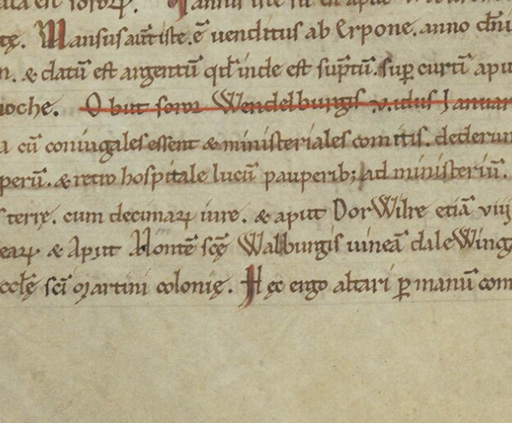 tę. Mansus aut̄ iste. ē uenditus ab Erpone. anno dn̄i
n. & datū est argentū qd̄ inde est sūptū. suꝑ curtū apu
noche. Obiit soror Wendelburgis v. idus Januar
a cū coniugales essent & ministeriales comitis. dederun
perū. & retro hospitale lucū pauperib; ad ministeriū.
s terrę. cum decimaꝝ iure. & aput DorWilre etiā viij
eaꝝ & Aput Montē scę̄ Walburgis uineā dale Wing
ccl̄ę sc̄i Martini colonię. Hęc ergo altari ꝑ manū com